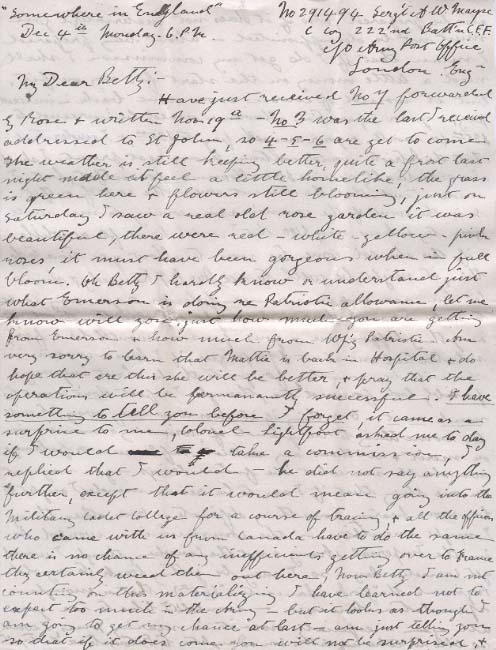 "Somewhere in England"
Dec 4th Monday 6 P.M.
No 291494 Serg't A W Mayse
C Coy 222nd Batt'n C.E.F.
c/o Army Post Office
London Eng
My Dear Betty:-
Have just received No 7 forwarded
by Rose & written Nov 19th - No 3 was the last I received
addressed to St John, so 4-5-6 are yet to come.
The weather is still keeping better, quite a frost last
night made it feel a little homelike, the grass
is green here & flowers still blooming, just on
Saturday I saw a real old rose garden it was
beautiful, there were red - white - yellow - pink
roses, it must have been gorgeous when in full
bloom. Oh Betty I hardly know or understand just
what Emerson is doing re Patriotic allowance, let me
know will you, just how much you are getting
from Emerson & how much from W'p'g Patriotic. Am
very sorry to learn that Mattie is back in Hospital & do
hope that ere this she will be better, & pray that the
operations will be permanantly successful. I have
something to tell you before I forget, it came as a
surprise to me, Colonel Lightfoot asked me to day
if I would take a commission, I
replied that I would - he did not say anything
further, except that it would mean going into the
Military Cadet College for a course of training, & all the officers
who came with us from Canada have to do the same
there is no chance of any inefficients getting over to France
they certainly weed them out here, Now Betty I am not
counting on this materializing I have learned not to
expect too much in the Army - but it looks as though I
am going to get my chance at last - am just telling you
so that if it does come you will not be surprised, &